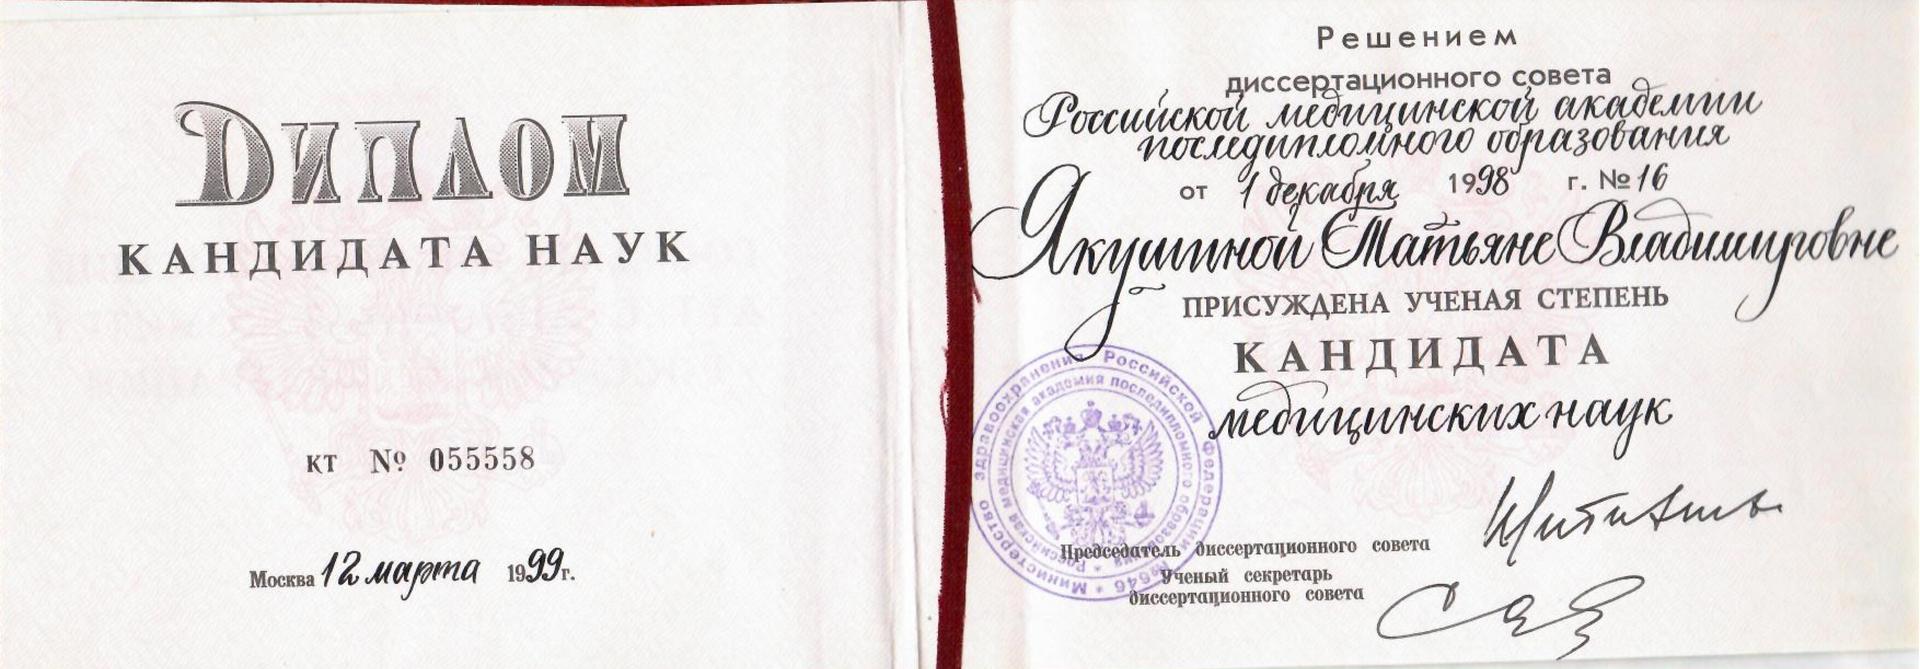 Диплом
КАНДИДАТА НАУК
КТ № 055558
Москва 12 марта 1999 г.
Решением
диссертационного совета
Российской медицинской академии
последипломного образования
от 1 декабря 1998 г. № 16
Якушиной Татьяне Владимировне
ПРИСУЖДЕНА УЧЕНАЯ СТЕПЕНЬ
КАНДИДАТА
медицинских наук
Председатель диссертационного совета
Ученый секретарь
диссертационного совета
Министерство здравоохранения Российской Федерации
Российская медицинская академия последипломного образования